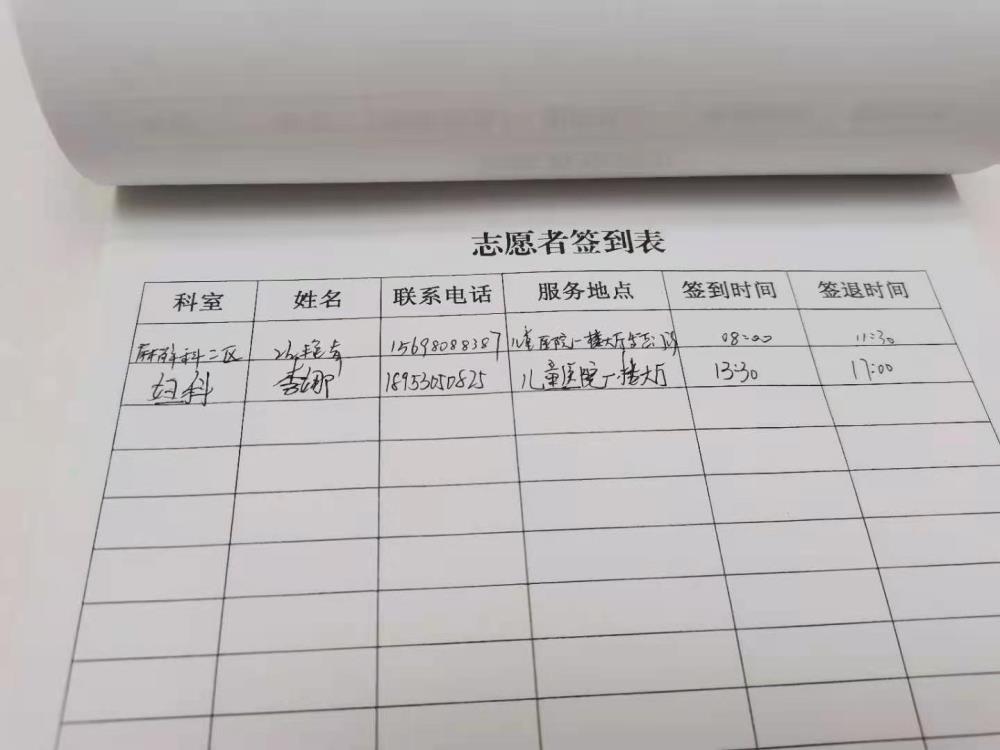 志愿者签到表
科室 姓名 联系电话 服务地点 签到时间 签退时间
麻醉科二区 15698088387 儿童医院一楼大厅 08:00 11:30
妇科 李娜 18953050825 儿童医院一楼大厅 13:30 17:00